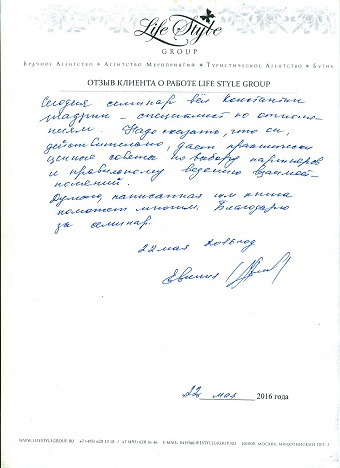 Life Style
GROUP
Брачное Агентство • Агентство Мероприятий • Туристическое Агентство • Бутик
ОТЗЫВ КЛИЕНТА О РАБОТЕ LIFE STYLE GROUP
Сегодня семинар вёл Константин
Мадрик – специалист по отноше-
ниям. Надо сказать, что он,
действительно, дает практически
ценные советы по выбору партнеров
и правильному ведению взаимоот-
ношений.
Думаю, написанная им книга
поможет многим. Благодарю
за семинар.
22 мая 2016 год
Евгения
22 мая 2016 года
WWW.LIFESTYLEGROUP.RU E-MAIL: INFO@LIFESTYLEGROUP.RU МОСКВА,